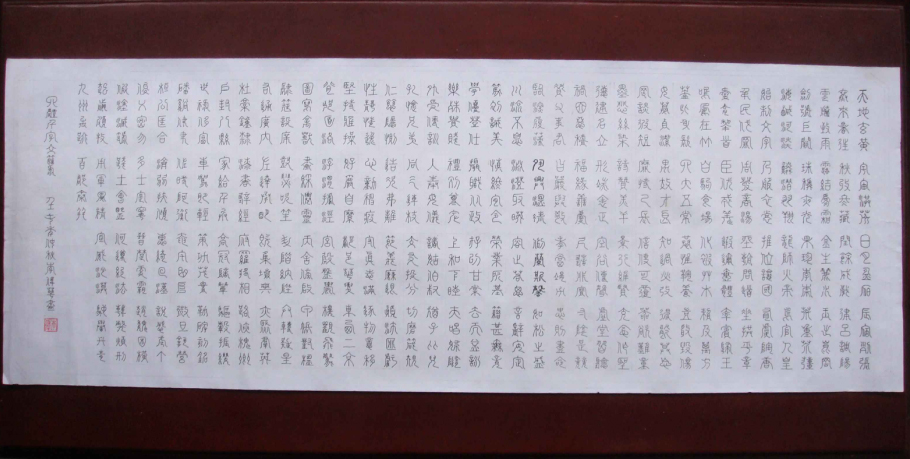 天地玄黃 宇宙洪荒 日月盈昃 辰宿列張
寒來暑往 秋收冬藏 閏餘成歲 律呂調陽
雲騰致雨 露結為霜 金生麗水 玉出崑岡
劍號巨闕 珠稱夜光 果珍李柰 菜重芥薑
海鹹河淡 鱗潛羽翔 龍師火帝 鳥官人皇
始制文字 乃服衣裳 推位讓國 有虞陶唐
弔民伐罪 周發殷湯 坐朝問道 垂拱平章
愛育黎首 臣伏戎羌 遐邇壹體 率賓歸王
鳴鳳在樹 白駒食場 化被草木 賴及萬方
蓋此身髮 四大五常 恭惟鞠養 豈敢毀傷
女慕貞潔 男效才良 知過必改 得能莫忘
罔談彼短 靡恃己長 信使可覆 器欲難量
墨悲絲染 詩讚羔羊 景行維賢 克念作聖
德建名立 形端表正 空谷傳聲 虛堂習聽
禍因惡積 福緣善慶 尺璧非寶 寸陰是競
資父事君 曰嚴與敬 孝當竭力 忠則盡命
臨深履薄 夙興溫凊 似蘭斯馨 如松之盛
川流不息 淵澄取映 容止若思 言辭安定
篤初誠美 慎終宜令 榮業所基 籍甚無竟
學優登仕 攝職從政 存以甘棠 去而益詠
樂殊貴賤 禮別尊卑 上和下睦 夫唱婦隨
外受傅訓 入奉母儀 諸姑伯叔 猶子比兒
孔懷兄弟 同氣連枝 交友投分 切磨箴規
仁慈隱惻 造次弗離 節義廉退 顛沛匪虧
性靜情逸 心動神疲 守真志滿 逐物意移
堅持雅操 好爵自縻 都邑華夏 東西二京
圖寫禽獸 畫綵仙靈 丙舍傍啟 甲帳對楹
肆筵設席 鼓瑟吹笙 升階納陛 弁轉疑星
右通廣內 左達承明 既集墳典 亦聚群英
杜稿鍾隸 漆書壁經 府羅將相 路俠槐卿
戶封八縣 家給千兵 高冠陪輦 驅轂振纓
世祿侈富 車駕肥輕 策功茂實 勒碑刻銘
磻溪伊尹 佐時阿衡 奄宅曲阜 微旦孰營
桓公匡合 濟弱扶傾 綺迴漢惠 說感武丁
俊乂密勿 多士寔寧 晉楚更霸 趙魏困橫
假途滅虢 踐土會盟 何遵約法 韓弊煩刑
起翦頗牧 用軍最精 宣威沙漠 馳譽丹青
九州禹跡 百郡秦并